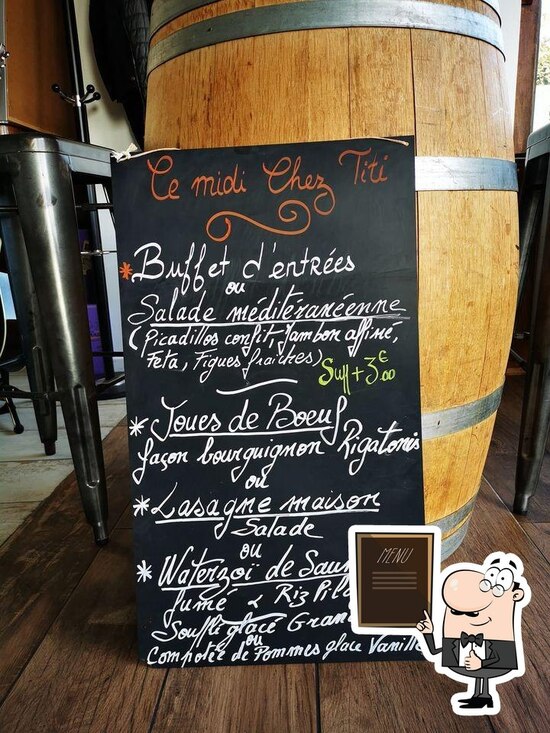 Ce midi Chez Titi
* Buffet d'entrées
ou
Salade méditéranéenne
(Picadillos confit, Jambon affiné,
Feta, Figues fraîches)
Suff + 3€.00
* Joues de Boeuf
façon bourguignon Rigatonis
ou
* Lasagne maison
Salade
ou
* Waterzoï de
fumé & Riz
Soufflé glacé
ou
Compotée de Pommes glace
MENU